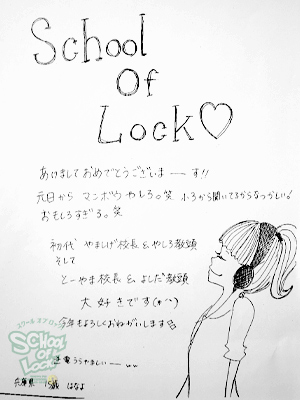 School
Of
Lock♡
あけましておめでとうございまーーす!!
元日から マンボウやしろ。笑 小3から聞いてるからなっつかしい!
おもしろすぎる。笑
初代 やましげ校長&やしろ教頭
そして
とーやま校長&よしだ教頭
大好きです(*^^*)
今年もよろしくおねがいします
うらやましいーーww
兵庫県 はなよ
スクール オブ ロック!
SCHOOL
OF
LOCK!